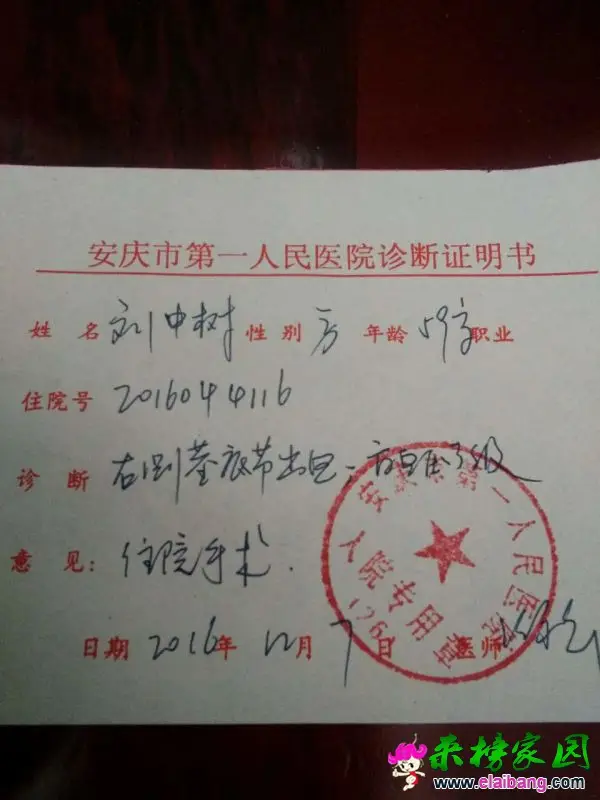 安庆市第一人民医院诊断证明书
姓 名 刘中树 性 别 男 年龄 59岁 职业
住院号 2016044116
诊 断 右侧基底节出血；高血压3级
意 见： 住院手术.
日期 2016年 12月 7日 医师
安庆市第一人民医院
入院专用章
采榜家园
www.elaibang.com